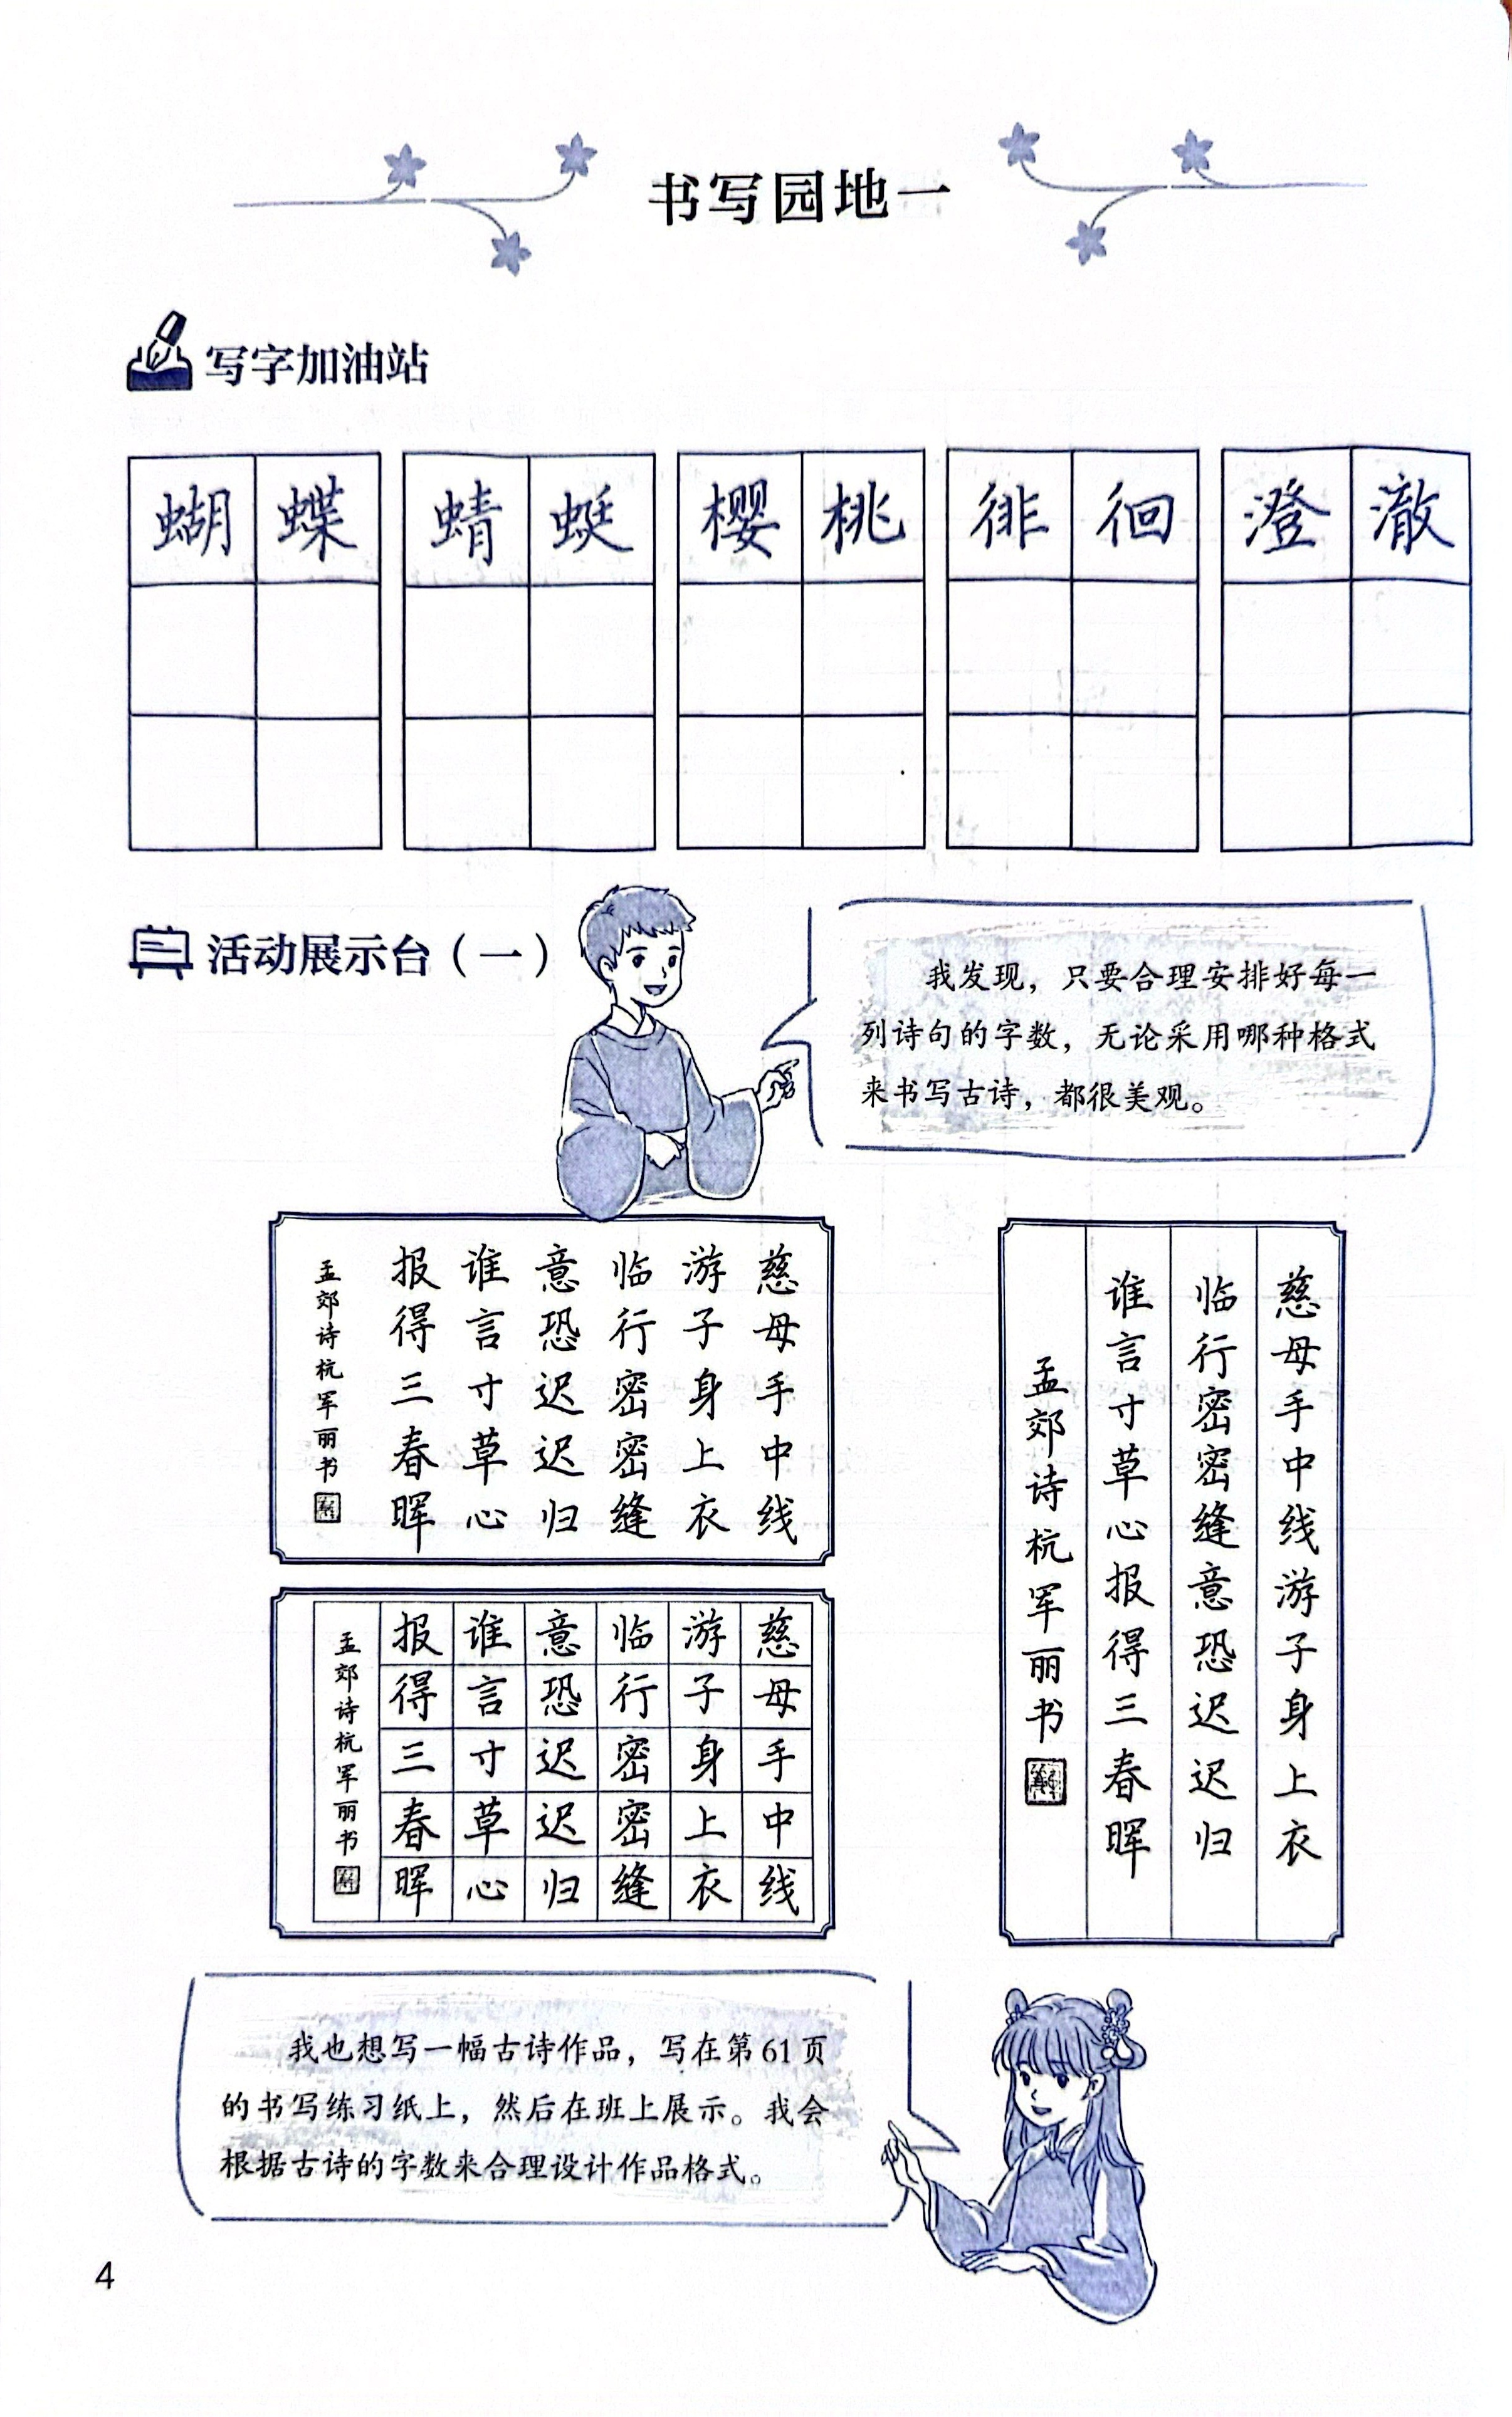 书写园地一
写字加油站
蝴蝶 蜻蜓 樱桃 徘徊 澄澈
活动展示台（一）
我发现，只要合理安排好每一
列诗句的字数，无论采用哪种格式
来书写古诗，都很美观。
慈母手中线
游子身上衣
临行密密缝
意恐迟迟归
谁言寸草心
报得三春晖
孟郊诗杭军丽书
慈母手中线游子身上衣
临行密密缝意恐迟迟归
谁言寸草心报得三春晖
孟郊诗杭军丽书
慈母手中线
游子身上衣
临行密密缝
意恐迟迟归
谁言寸草心
报得三春晖
孟郊诗杭军丽书
我也想写一幅古诗作品，写在第61页
的书写练习纸上，然后在班上展示。我会
根据古诗的字数来合理设计作品格式。
4